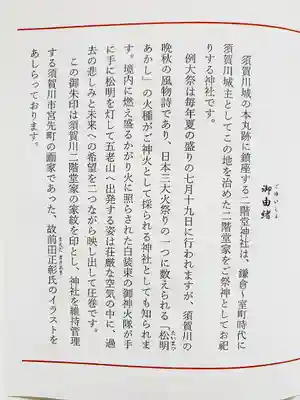 御由緒
ごゆいしょ
須賀川城の本丸跡に鎮座する二階堂神社は、鎌倉～室町時代に
須賀川城主としてこの地を治めた二階堂家をご祭神としてお祀
りする神社です。
例大祭は毎年夏の盛りの七月十九日に行われますが、須賀川の
晩秋の風物詩であり、日本三大火祭りの一つに数えられる「松明
たいまつ
あかし」の火種がご神火として採られる神社としても知られま
す。境内に燃え盛るかがり火に照らされた白装束の御神火隊が手
に手に松明を灯して五老山へ出発する姿は荘厳な空気の中に、過
去の悲しみと未来への希望を二つながら映し出して圧巻です。
この御朱印は須賀川二階堂家の家紋を印とし、神社を維持管理
する須賀川市宮先町の画家であった、故前田正彰氏のイラストを
あしらっております。